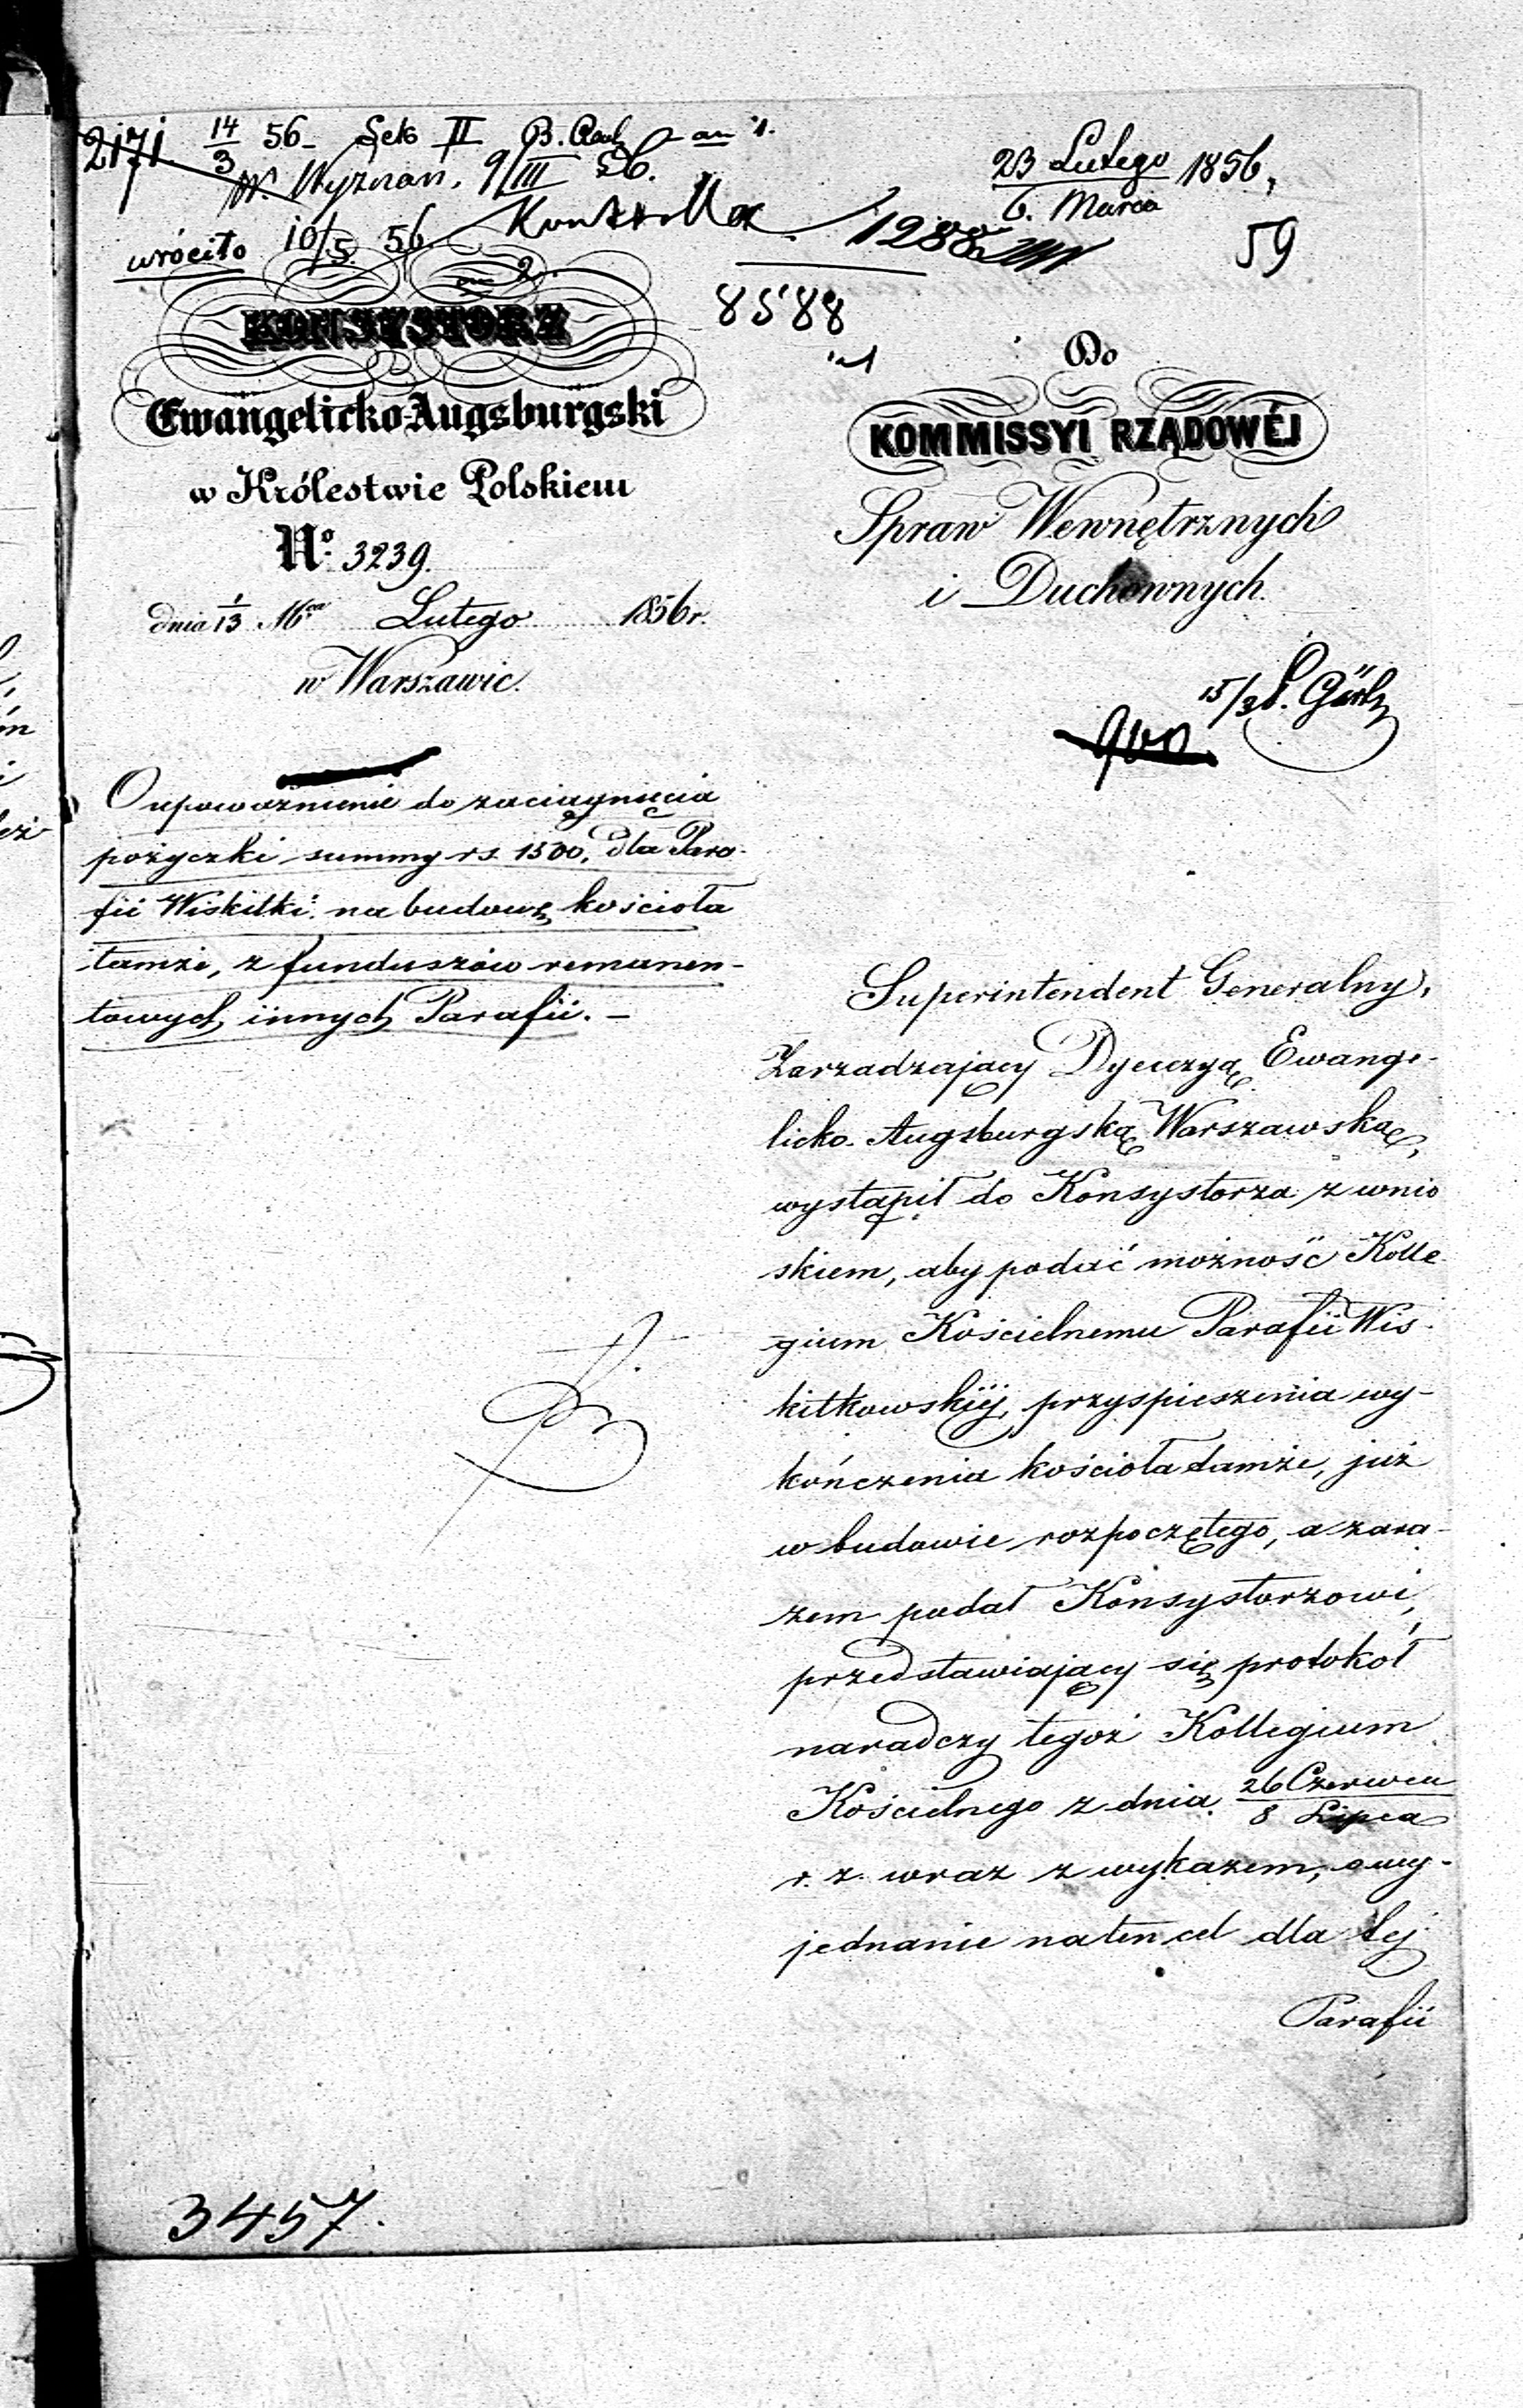 2171. 14/3 56 Sek II
W. Wyznań. 9/III 56.
wróciło 10/5 56 Kontrolla 1288
23 Lutego 1856,
6. Marca
59
8588
KONSYSTORZ
Ewangelicko-Augsburgski
w Królestwie Polskiem
No: 3239.
dnia 1/13 Mca Lutego 1856 r.
w Warszawie.
Do
KOMMISSYI RZĄDOWÉJ
Spraw Wewnętrznych
i Duchownych.
15/3
O upoważnienie do zaciągnięcia
pożyczki summy rs. 1500, dla Para-
fii Wiskitki na budowę kościoła
tamże, z funduszów remanen-
towych innych Parafii. –
Superintendent Generalny,
Zarządzający Dyecezyą Ewange-
licko-Augsburgską Warszawską,
wystąpił do Konsystorza z wnio
skiem, aby podać możność Kolle
gium Kościelnemu Parafii Wis-
kitkowskiej, przyspieszenia wy-
kończenia kościoła tamże, już
w budowie rozpoczętego, a zara-
zem podał Konsystorzowi,
przedstawiający się protokół
naradczy tegoż Kollegium
Kościelnego z dnia 26 Czerwca
8 Lipca
r. z. wraz z wykazem, o wy-
jednanie na ten cel dla tej
Parafii
3457.